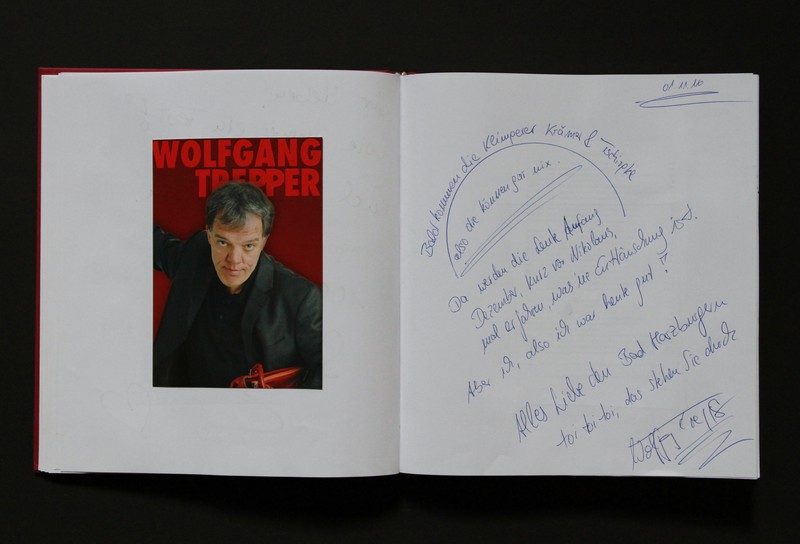 WOLFGANG
TREPPER
01.11.10
Bald kommen die Klimperer Krämer &
also die können gar nix.
Da werden die Leute Anfang
Dezember, kurz vor Nikolaus,
mal erfahren, was ne Enttäuschung ist.
Aber ich, also ich war heute gut!!
Alles Liebe den Bad Harzburgern
toi toi toi, das stehen Sie durch
Wolfgang Trepper